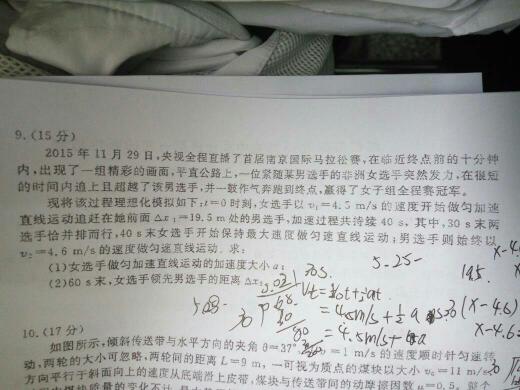 9.(15 分)
2015 年 11 月 29 日,央视全程直播了首届南京国际马拉松赛,在临近终点前的十分钟
内,出现了一组精彩的画面,平直公路上,一位紧随某男选手的非洲女选手突然发力,在很短
的时间内追上且超越了该男选手,并一鼓作气奔跑到终点,赢得了女子组全程赛冠军。
现将该过程理想化模拟如下:t=0 时刻,女选手以 v₁=4.5 m/s 的速度开始做匀加速
直线运动追赶在她前面 Δx₁=19.5 m处的男选手,加速过程共持续 40 s, 其中,30 s 末两
选手恰并排而行,40 s 末女选手开始保持最大速度做匀速直线运动;男选手则始终以
v₂=4.6 m/s 的速度做匀速直线运动. 求:
(1)女选手做匀加速直线运动的加速度大小 a;
(2)60 s 末,女选手领先男选手的距离 Δx₂.
5.25-
19.5
10.(17 分)
如图所示,倾斜传送带与水平方向的夹角 θ=37°, =1 m/s 的速度顺时针匀速转
动,两轮的大小可忽略,两轮间的距离 L=9 m,一可视为质点的煤块以大小 v₀=11 m/s
方向平行于斜面向上的速度从底端滑上皮带,煤块与传送带间的动摩擦因数 =0.5,